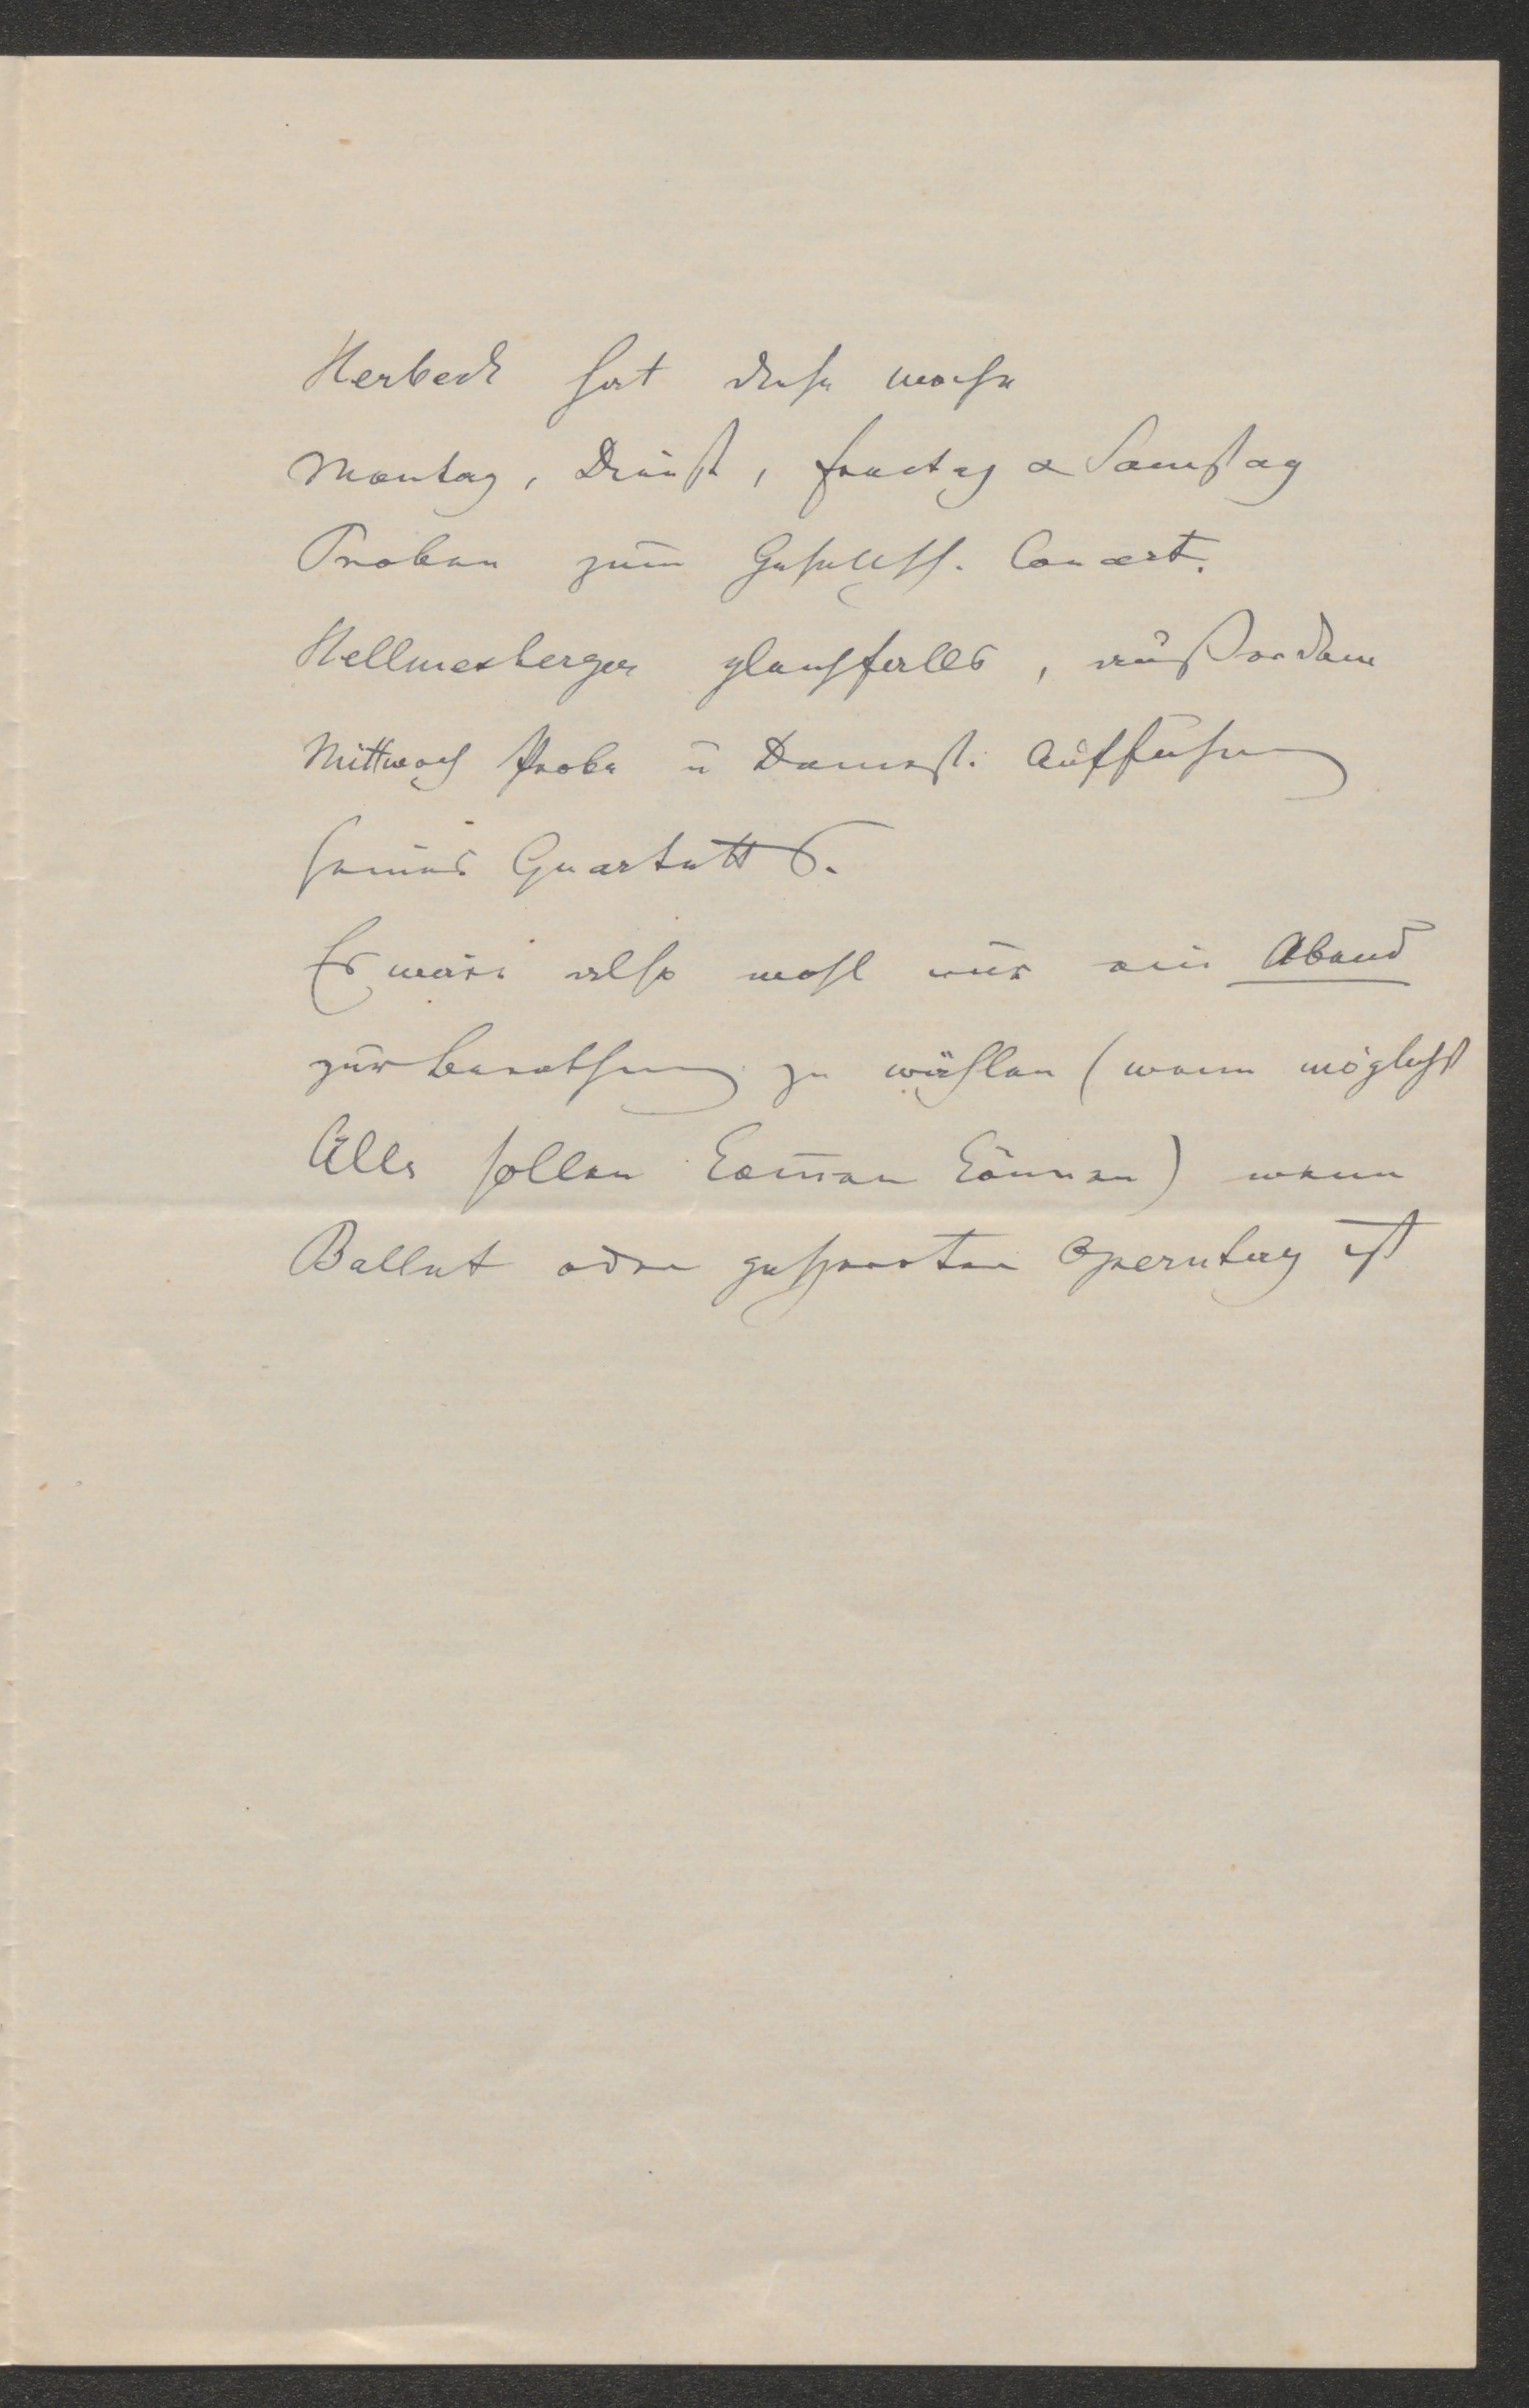 Herbeck hat diese Woche
Montag, Dienst, Freitag & Samstag
Proben zum Gesellsch. Concert.
Hellmesberger gleichfalls, außerdem
Mittwoch Probe u Donnerst. Aufführung
seines Quartetts.
Es wäre also wohl nur ein Abend
zur Berathung zu wählen (wenn möglichst
Alle sollen kom̄en können) wenn
Ballet oder gesperrter Operntag ist